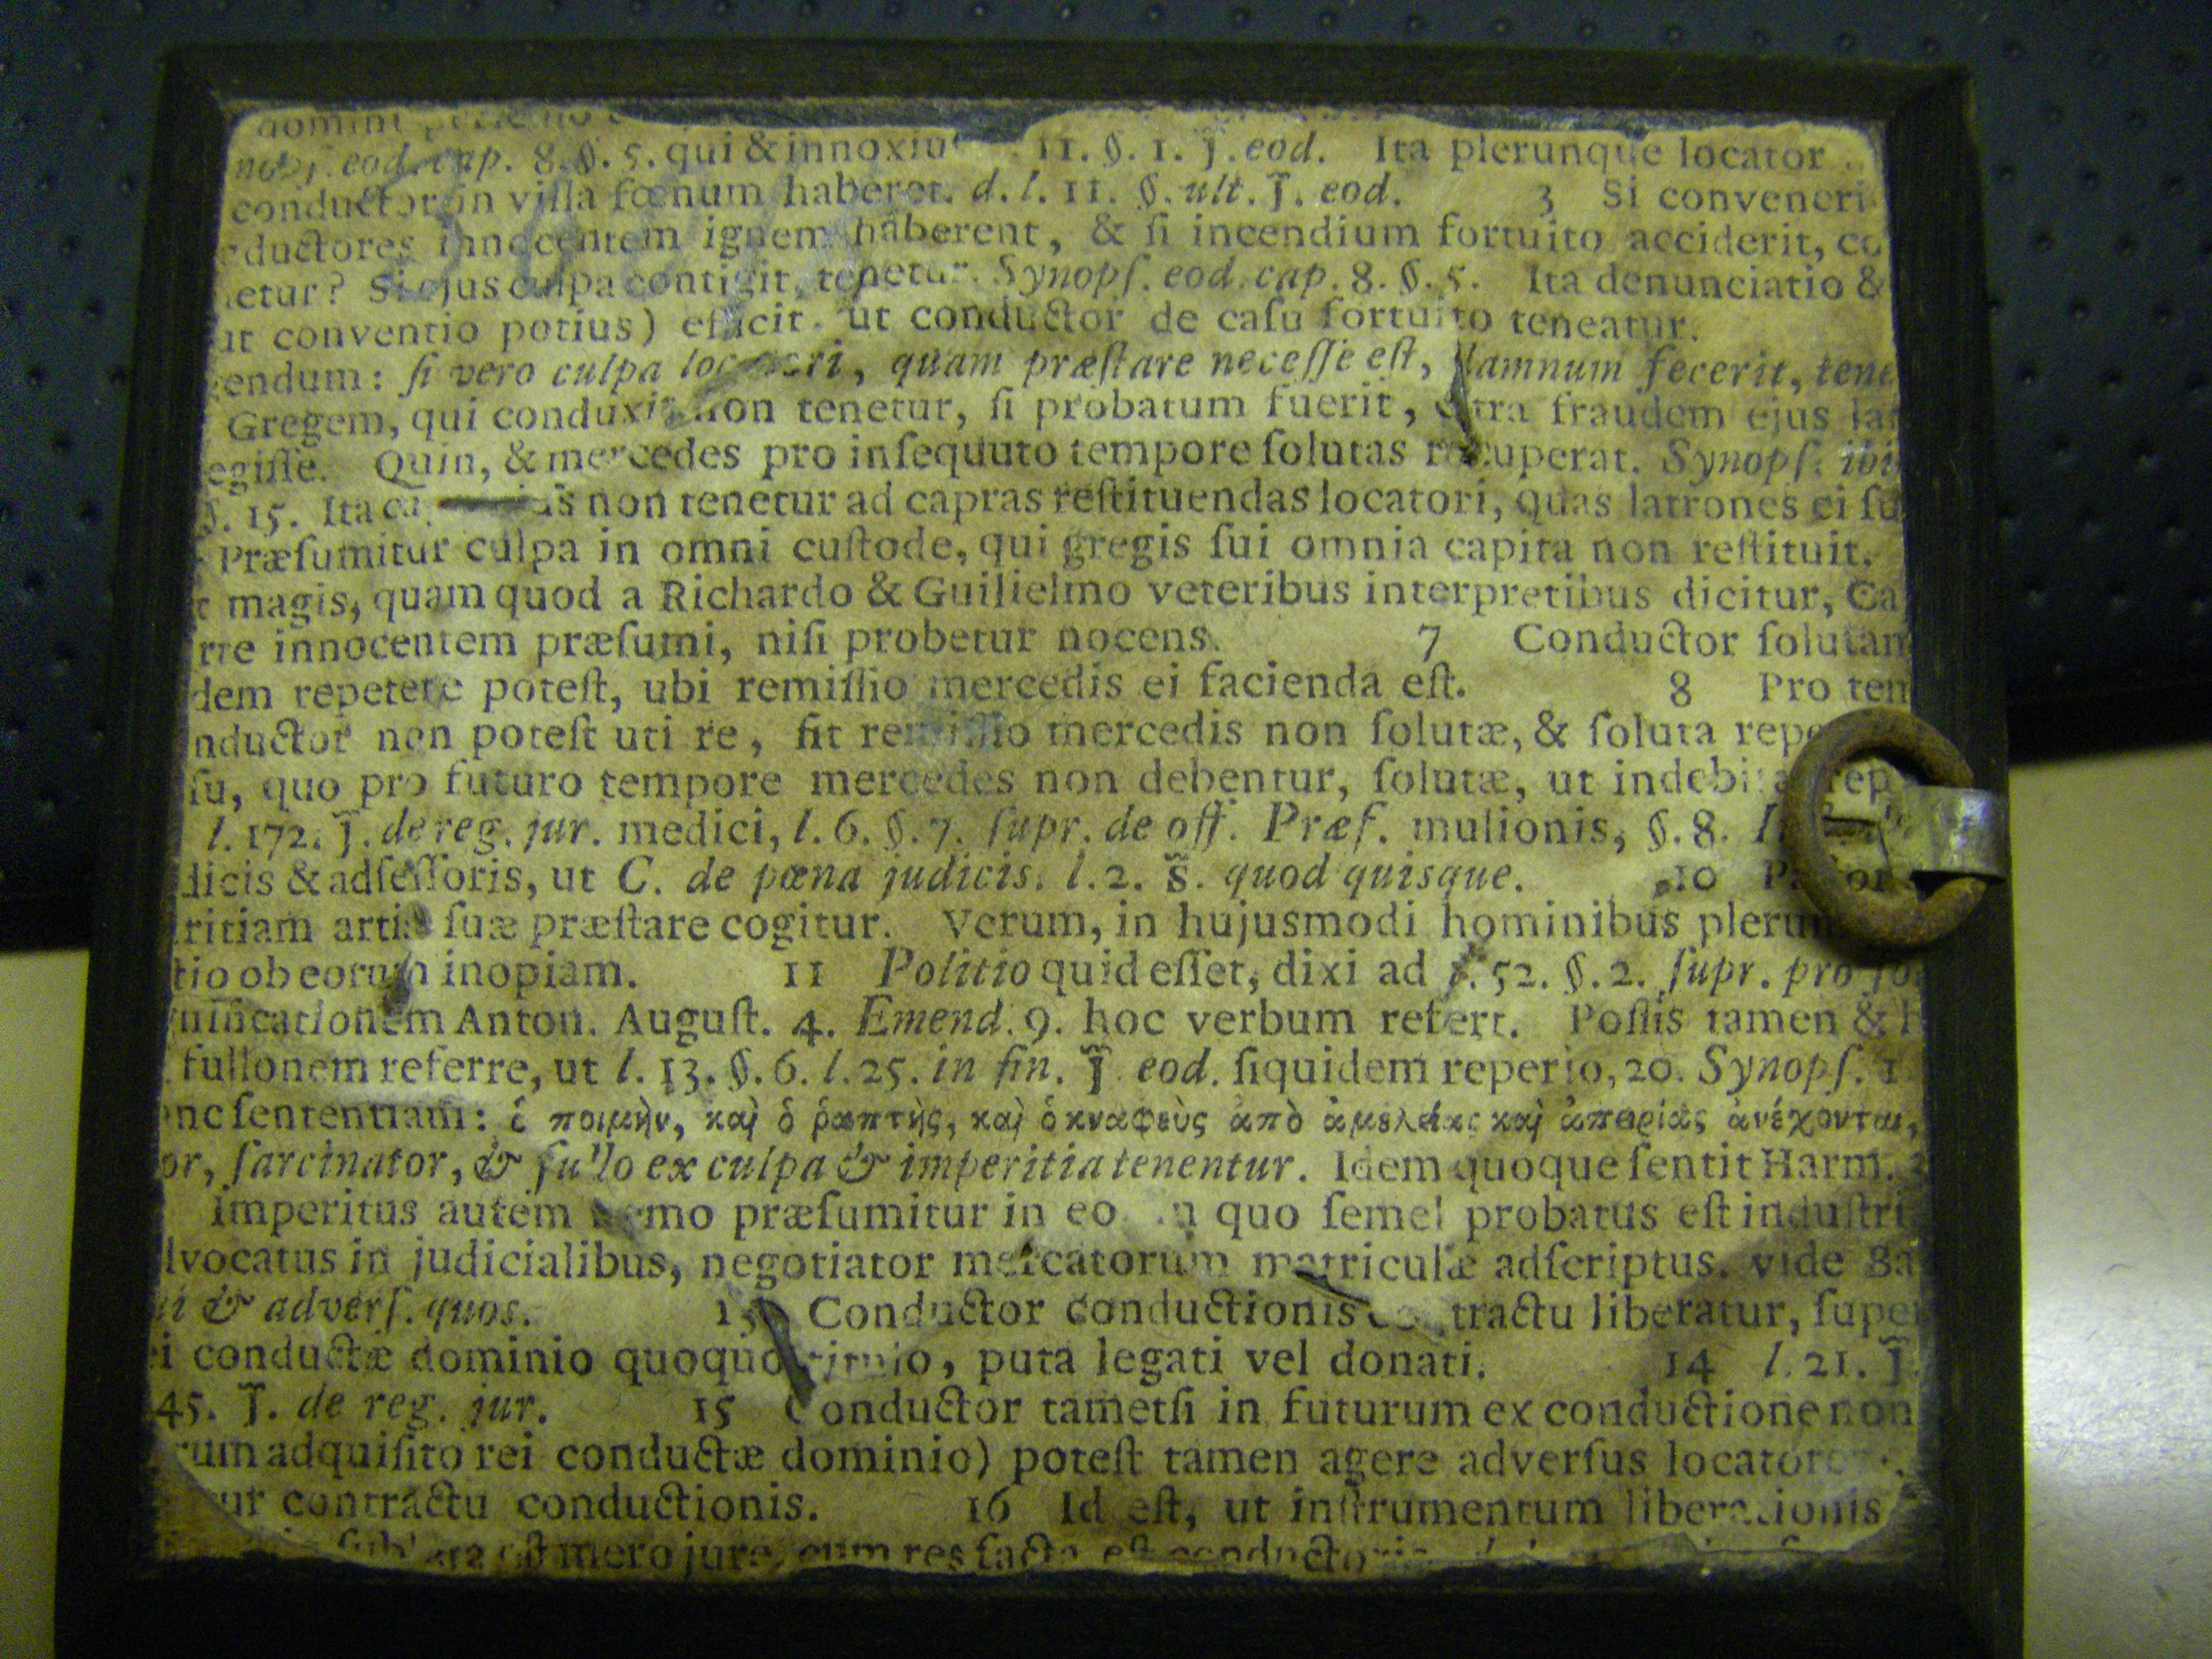 eod. cap. 8. §. 5. qui & innoxiu 11. §. 1. J. eod. Ita plerunque locator
conductor in villa fœnum haberet. d. l. 11. §. ult. J. eod. 3 Si conveneri
ductores innocentem ignem haberent, & ſi incendium fortuito acciderit, co
etur? Si ejus culpa contigit, tenetur. Synopſ. eod. cap. 8. §. 5. Ita denunciatio &
ut conventio potius) efficit, ut conductor de caſu fortuito teneatur.
endum: ſi vero culpa locatori, quam præſtare neceſſe eſt, damnum fecerit, tene
Gregem, qui conduxit, non tenetur, ſi probatum fuerit, citra fraudem ejus la
egiſſe. Quin, & mercedes pro inſequuto tempore ſolutas recuperat. Synopſ. ibi
§. 15. Ita non tenetur ad capras reſtituendas locatori, quas latrones ei ſu
Præſumitur culpa in omni cuſtode, qui gregis ſui omnia capita non reſtituit.
t magis, quam quod a Richardo & Guilielmo veteribus interpretibus dicitur, Ca
rre innocentem præſumi, niſi probetur nocens. 7 Conductor ſolutam
dem repetere poteſt, ubi remiſſio mercedis ei facienda eſt. 8 Pro tem
nductor non poteſt uti re, fit remiſſio mercedis non ſolutæ, & ſoluta repe
ſu, quo pro futuro tempore mercedes non debentur, ſolutæ, ut indebita rep
l. 172. J. de reg. jur. medici, l. 6. §. 7. ſupr. de off. Præſ. mulionis, §. 8.
dicis & adſeſſoris, ut C. de pœna judicis. l. 2. s̃. quod quisque. 10
ritiam artis ſuæ præſtare cogitur. Verum, in hujusmodi hominibus plerum
tio ob eorum inopiam. 11 Politio quid eſſet, dixi ad l. 52. §. 2. ſupr. pro ſo
nificationem Anton. Auguſt. 4. Emend. 9. hoc verbum refert. Poſſis tamen & h
fullonem referre, ut l. 13. §. 6. l. 25. in fin. J. eod. ſiquidem reperio, 20. Synopſ. 1
nc ſententiam: ὁ ποιμὴν, καὶ ὁ ῥαπτὴς, καὶ ὁ κναφεὺς ἀπὸ ἀμελείας καὶ ἀπειρίας ἀνέχονται,
or, ſarcinator, & fullo ex culpa & imperitia tenentur. Idem quoque ſentit Harm. 3
Imperitus autem nemo præſumitur in eo, in quo ſemel probatus eſt induſtri
dvocatus in judicialibus, negotiator mercatorum matriculæ adſcriptus. vide Ba
i & adverſ. quos. 13 Conductor conductionis contractu liberatur, ſuper
ei conductæ dominio quoquo titulo, puta legati vel donati. 14 l. 21. J.
45. J. de reg. jur. 15 Conductor tametſi in futurum ex conductione non
rum adquiſito rei conductæ dominio) poteſt tamen agere adverſus locatore
tur contractu conductionis. 16 Id eſt, ut inſtrumentum liberationis
eſt mero jure, cum res facta eſt conducto